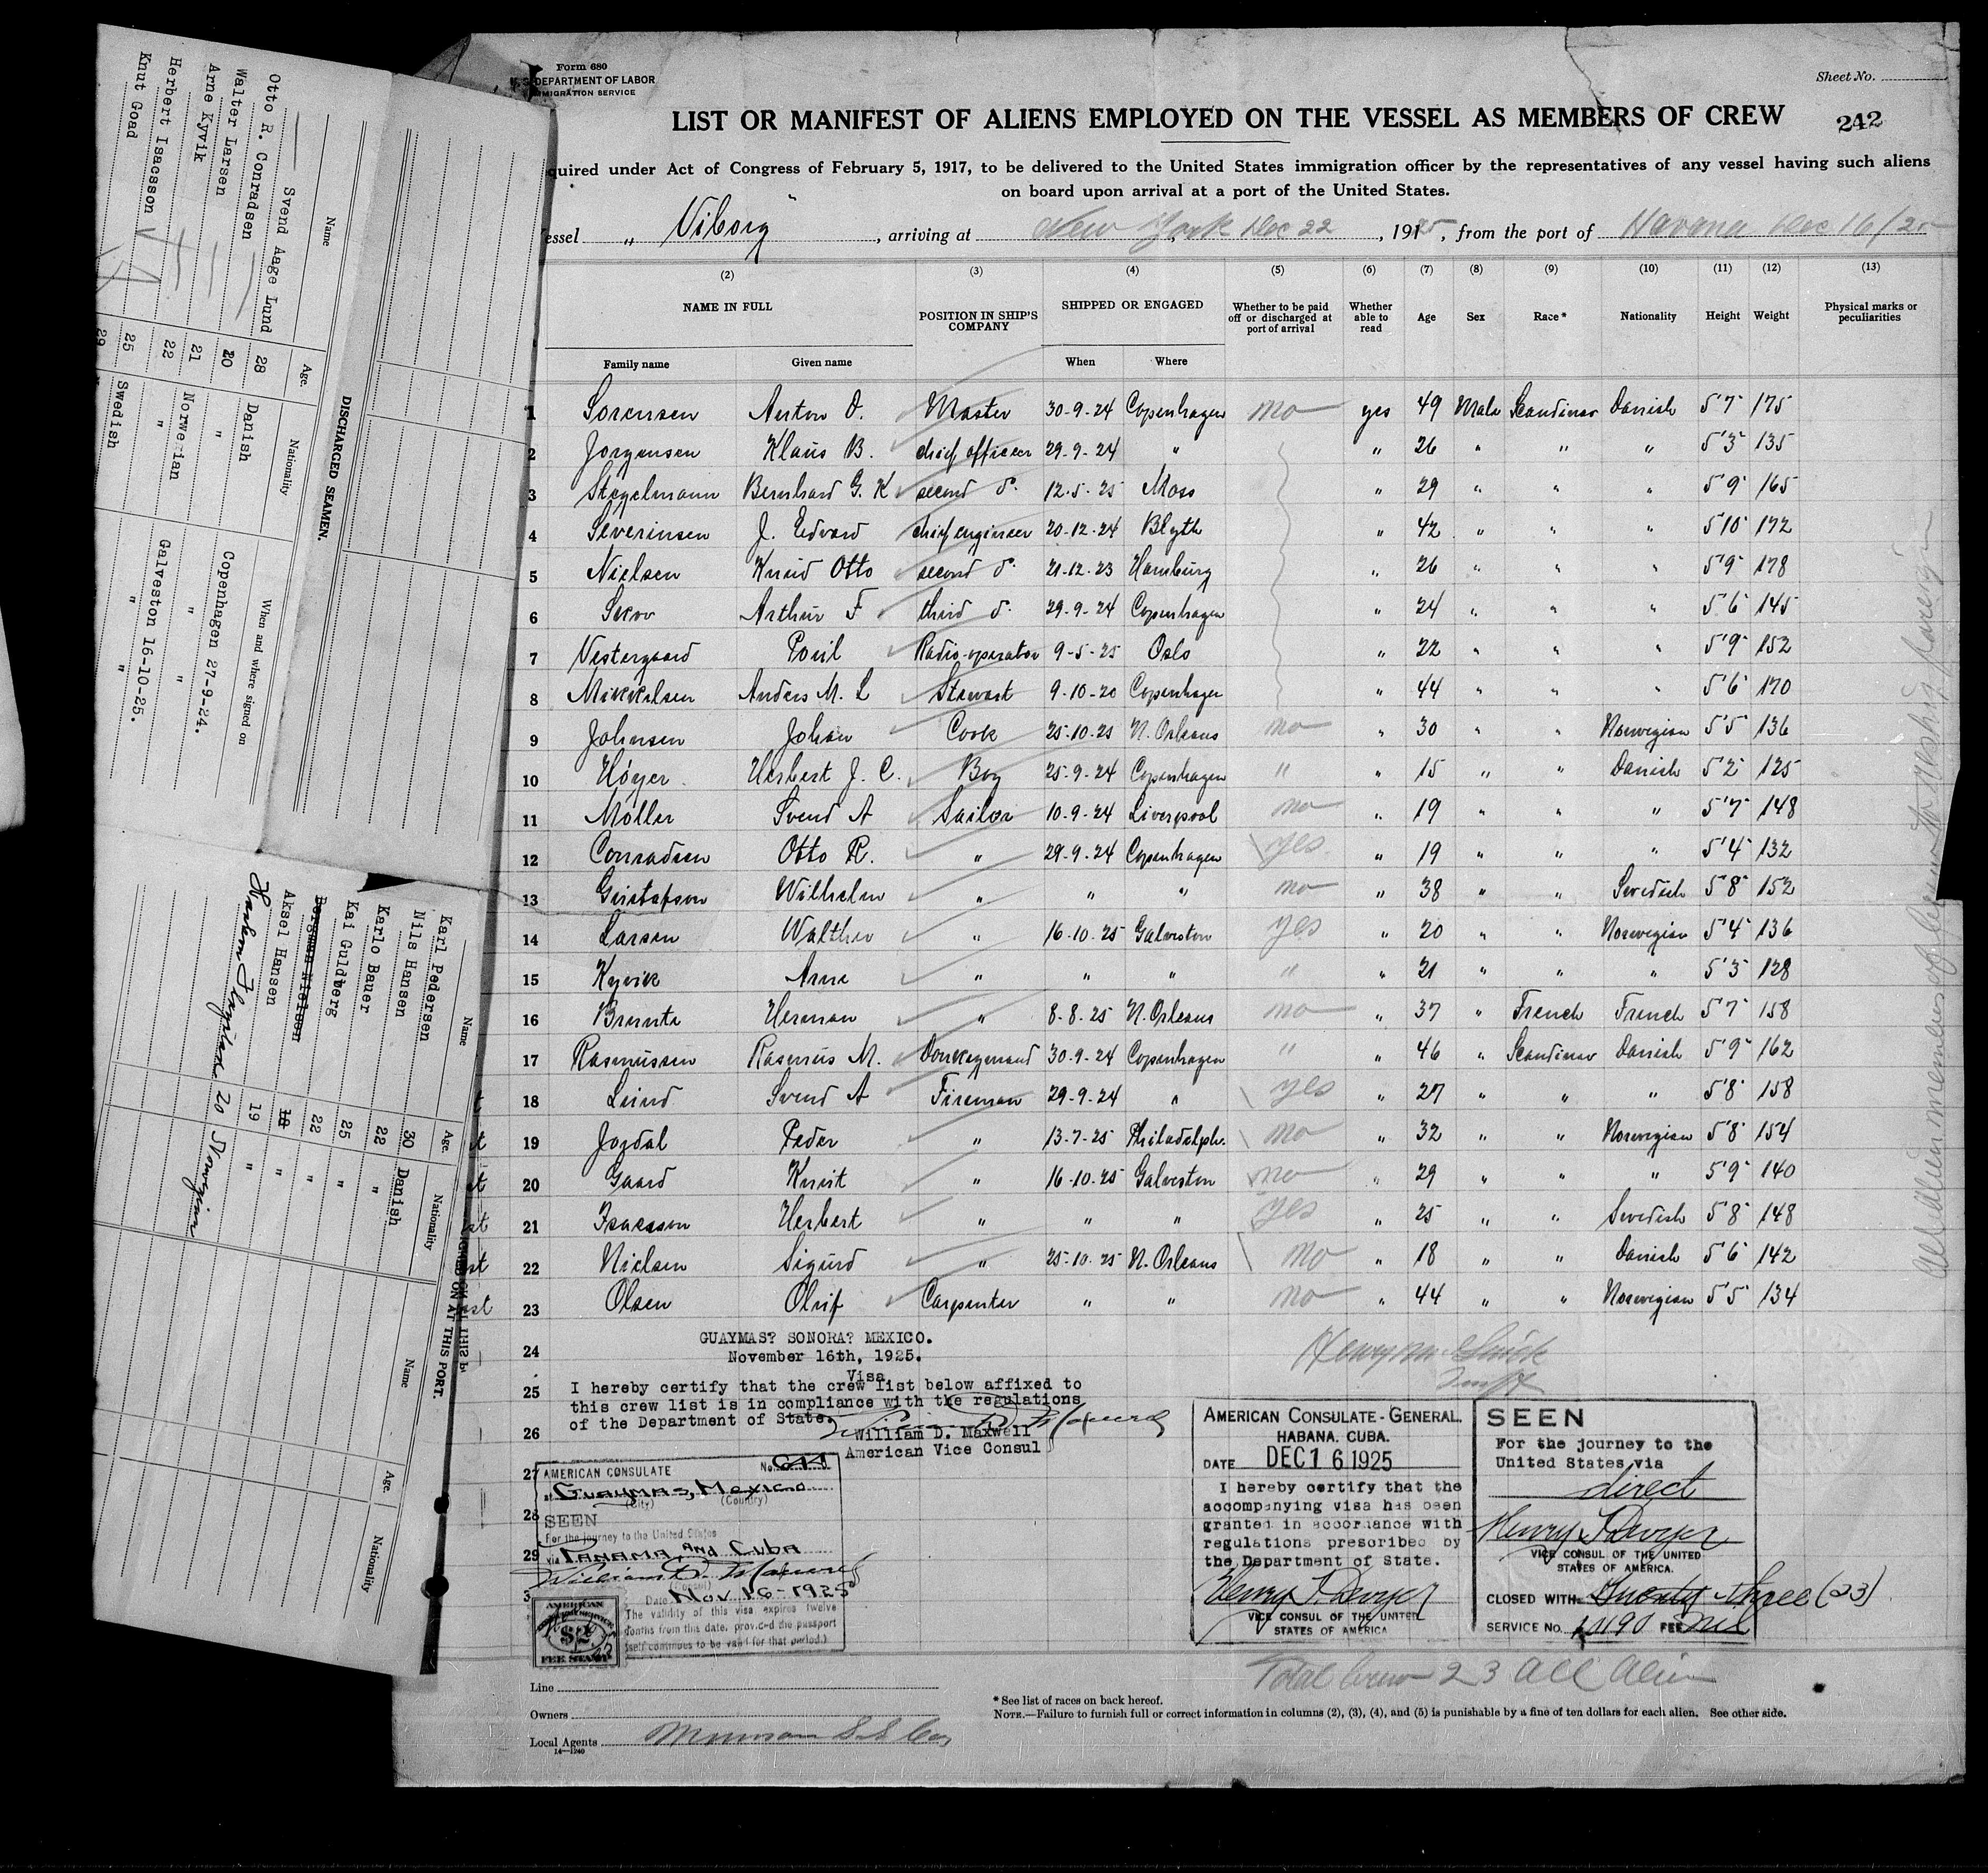 Form 680
U. S. DEPARTMENT OF LABOR
IMMIGRATION SERVICE
Sheet No.
LIST OR MANIFEST OF ALIENS EMPLOYED ON THE VESSEL AS MEMBERS OF CREW
242
quired under Act of Congress of February 5, 1917, to be delivered to the United States immigration officer by the representatives of any vessel having such aliens
on board upon arrival at a port of the United States.
essel " Viborg " , arriving at New York Dec 22 , 1925 , from the port of Havana Dec 16/25
(2) (3) (4) (5) (6) (7) (8) (9) (10) (11) (12) (13)
NAME IN FULL POSITION IN SHIP'S COMPANY SHIPPED OR ENGAGED Whether to be paid off or discharged at port of arrival Whether able to read Age Sex Race* Nationality Height Weight Physical marks or peculiarities
Family name Given name When Where
1 Sorensen Anton O. Master 30-9-24 Copenhagen no yes 49 Male Scandinav Danish 5'7" 175
2 Jorgensen Klaus B. chief officer 29-9-24 " " 26 " " " 5'3" 135
3 Stegelmann Bernhard G. K second o. 12-5-25 Moss " 29 " " " 5'9" 165
4 Severinsen J. Edvard chief engineer 20-12-24 Blyth " 42 " " " 5'10" 172
5 Nielsen Knud Otto second o. 21-12-23 Hamburg " 26 " " " 5'9" 178
6 Skov Arthur F third o. 29-9-24 Copenhagen " 24 " " " 5'6" 145
7 Vestergaard Poul Radio operator 9-5-25 Oslo " 22 " " " 5'9" 152
8 Mikkelsen Anders M. L Stewart 9-10-20 Copenhagen " 44 " " " 5'6" 170
9 Johnsen Johan Cook 25-10-25 N. Orleans no " 30 " " Norwegian 5'5" 136
10 Höyer Herbert J. C. Boy 25-9-24 Copenhagen " " 15 " " Danish 5'2" 125
11 Möller Svend A Sailor 10-9-24 Liverpool no " 19 " " " 5'7" 148
12 Conradsen Otto R. " 29-9-24 Copenhagen yes " 19 " " " 5'4" 132
13 Gustafson Wilhelm " " " no " 38 " " Swedish 5'8" 152
14 Larsen Walther " 16-10-25 Galveston yes " 20 " " Norwegian 5'4" 136
15 Kyvik Arne " " " " " 21 " " " 5'3" 128
16 Herman " 8-8-25 N. Orleans no " 37 " French French 5'7" 158
17 Rasmussen Rasmus M. Donkeymand 30-9-24 Copenhagen " " 46 " Scandinav Danish 5'9" 162
18 Lund Svend A Fireman 29-9-24 " yes " 27 " " " 5'8" 158
19 Jordal Peder " 13-7-25 Philadelph. no " 32 " " Norwegian 5'8" 154
20 Goard Knut " 16-10-25 Galveston no " 29 " " " 5'9" 140
21 Isacsson Herbert " " " yes " 25 " " Swedish 5'8" 148
22 Nielsen Sigurd " 25-10-25 N. Orleans no " 18 " " Danish 5'6" 142
23 Olsen Oluf Carpenter " " no " 44 " " Norwegian 5'5" 134
24
25
26
27
28
29
3
GUAYMAS? SONORA? MEXICO.
November 16th, 1925.
Visa
I hereby certify that the crew list below affixed to
this crew list is in compliance with the regulations
of the Department of State.
William D. Maxwell
American Vice Consul
AMERICAN CONSULATE No. 644
at Guaymas, Mexico
(City) (Country)
SEEN
For the journey to the United States
via Panama, and Cuba
William D. Maxwell
(Consul)
Date Nov. 16-1925
The validity of this visa expires twelve
months from this date, provided the passport
itself continues to be valid for that period.)
AMERICAN
$2
FEE STAMP
AMERICAN CONSULATE-GENERAL.
HABANA. CUBA.
DATE DEC 16 1925
I hereby certify that the
accompanying visa has been
granted in accordance with
regulations prescribed by
the Department of State.
Henry T. Dwyer
VICE CONSUL OF THE UNITED
STATES OF AMERICA
SEEN
For the journey to the
United States via
direct
Henry T. Dwyer
VICE CONSUL OF THE UNITED
STATES OF AMERICA.
CLOSED WITH Twenty three (23)
SERVICE No. FEE Nil
Total Crew 23 all alien
Line
Owners
Local Agents Munson S. S. Co.
14—1240
* See list of races on back hereof.
NOTE.—Failure to furnish full or correct information in columns (2), (3), (4), and (5) is punishable by a fine of ten dollars for each alien. See other side.
DISCHARGED SEAMEN.
Name Age. Nationality When and where signed on
Svend Aage Lund 28 Danish Copenhagen 27-9-24.
Otto R. Conradsen 20 " "
Walter Larsen 21 Norwegian Galveston 16-10-25.
Arne Kyvik 22 " "
Herbert Isacsson 25 Swedish "
Knut Goad 29
SIGNED ON AT THIS PORT.
Name Age. Nationality Name Age. Nationality
Karl Pedersen 30 Danish
Nils Hansen 22 "
Karlo Bauer 25 "
Kai Guldberg 22 "
Bergman Nielsen 18 "
Aksel Hansen 19 "
20 Norwegian